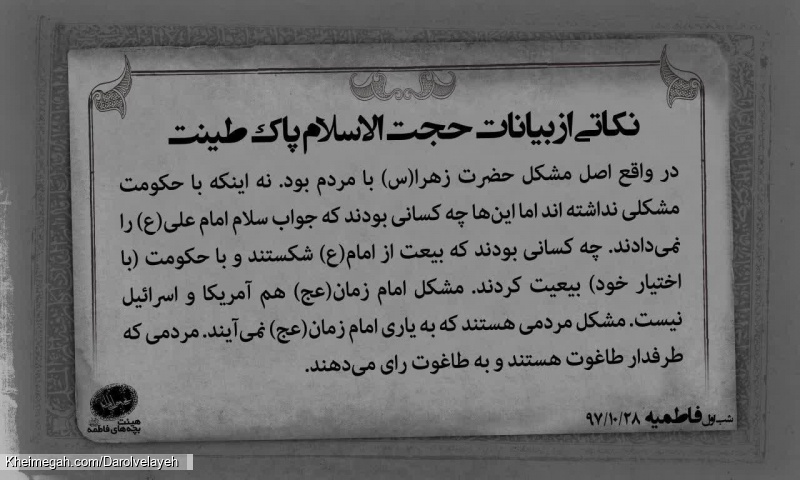 نکاتی از بیانات حجت الاسلام پاک طینت
در واقع اصل مشکل حضرت زهرا(س) با مردم بود. نه اینکه با حکومت
مشکلی نداشته اند اما این‌ها چه کسانی بودند که جواب سلام امام علی(ع) را
نمی‌دادند. چه کسانی بودند که بیعت از امام(ع) شکستند و با حکومت (با
اختیار خود) بیعیت کردند. مشکل امام زمان(عج) هم آمریکا و اسرائیل
نیست. مشکل مردمی هستند که به یاری امام زمان(عج) نمی‌آیند. مردمی که
طرفدار طاغوت هستند و به طاغوت رای می‌دهند.
شب اول فاطمیه ۹۷/۱۰/۲۸
هیئت
بچه‌های فاطمه
Kheimegah.com/Darolvelayeh